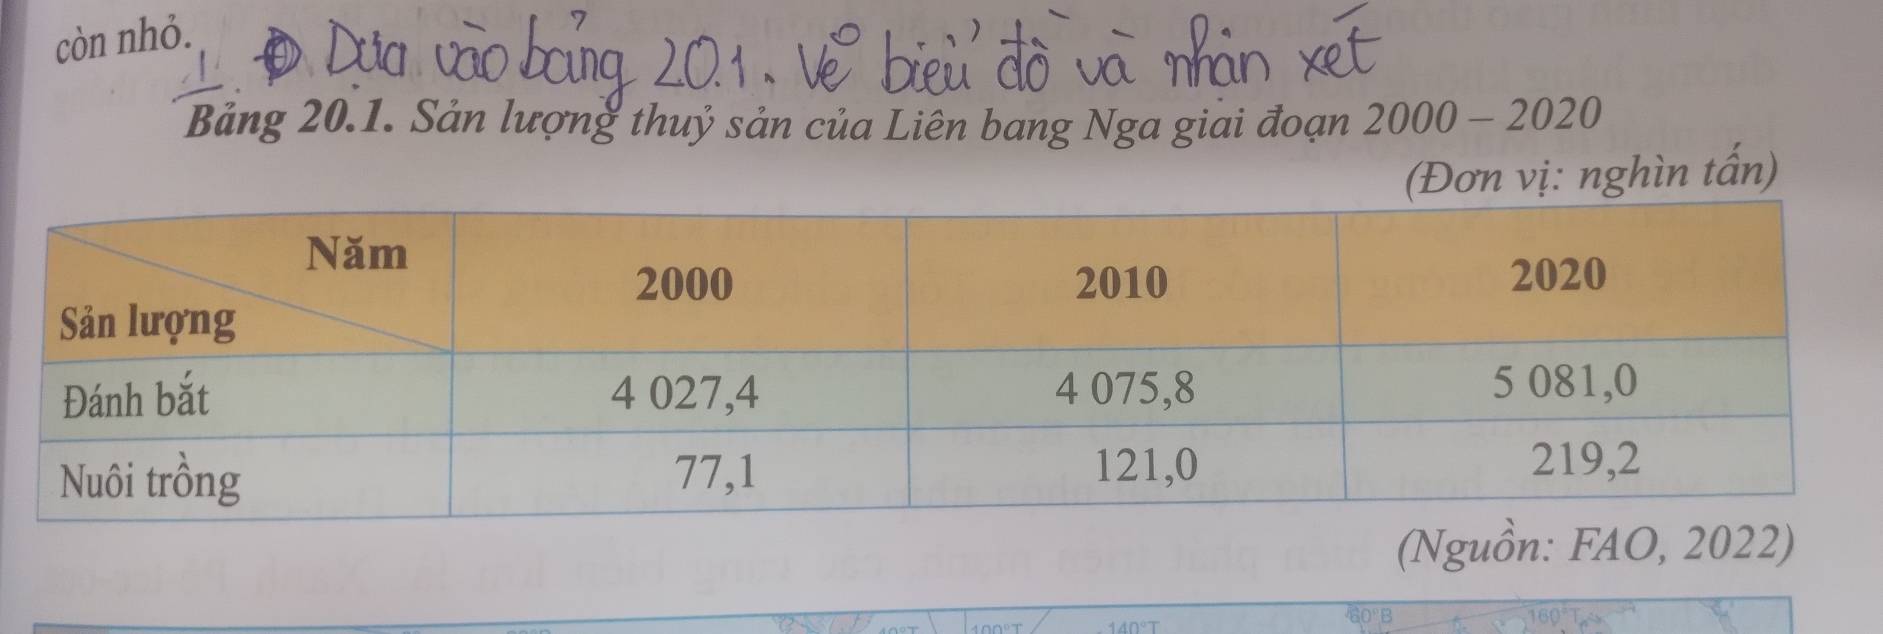 còn nhỏ.
1 Dựa vào bảng 20.1. Vẽ biểu đồ và nhận xét
Bảng 20.1. Sản lượng thuỷ sản của Liên bang Nga giai đoạn 2000 – 2020
(Đơn vị: nghìn tấn)
Năm 2000 2010 2020
Sản lượng
Đánh bắt 4 027,4 4 075,8 5 081,0
Nuôi trồng 77,1 121,0 219,2
(Nguồn: FAO, 2022)
100°T 140°T 60°B 160°T